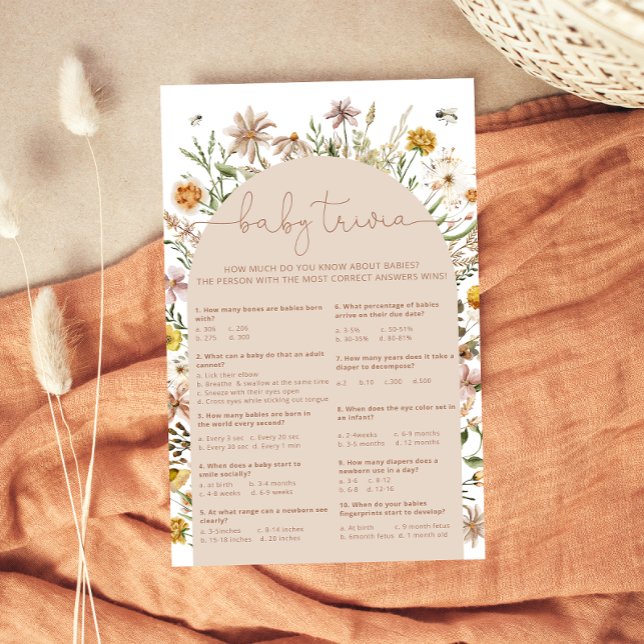 baby trivia
HOW MUCH DO YOU KNOW ABOUT BABIES?
THE PERSON WITH THE MOST CORRECT ANSWERS WINS!
1. How many bones are babies born
with?
a. 306 c. 206
b. 275 d. 300
2. What can a baby do that an adult
cannot?
a. Lick their elbow
b. Breathe & swallow at the same time
c. Sneeze with their eyes open
d. Cross eyes while sticking out tongue
3. How many babies are born in
the world every second?
a. Every 3 sec c. Every 20 sec
b. Every 30 sec d. Every 1 min
4. When does a baby start to
smile socially?
a. at birth b. 3-4 months
c. 4-8 weeks d. 6-9 weeks
5. At what range can a newborn see
clearly?
a. 3-5inches c. 8-14 inches
b. 15-18 inches d. 20 inches
6. What percentage of babies
arrive on their due date?
a. 3-5% c. 50-51%
b. 30-35% d. 80-81%
7. How many years does it take a
diaper to decompose?
a.2 b.10 c.300 d.500
8. When does the eye color set in
an infant?
a. 2-4weeks c. 6-9 months
b. 3-5 months d. 12 months
9. How many diapers does a
newborn use in a day?
a. 3-6 c. 8-12
b. 6-8 d. 12-16
10. When do your babies
fingerprints start to develop?
a. At birth c. 9 month fetus
b. 6month fetus d. 1 month old